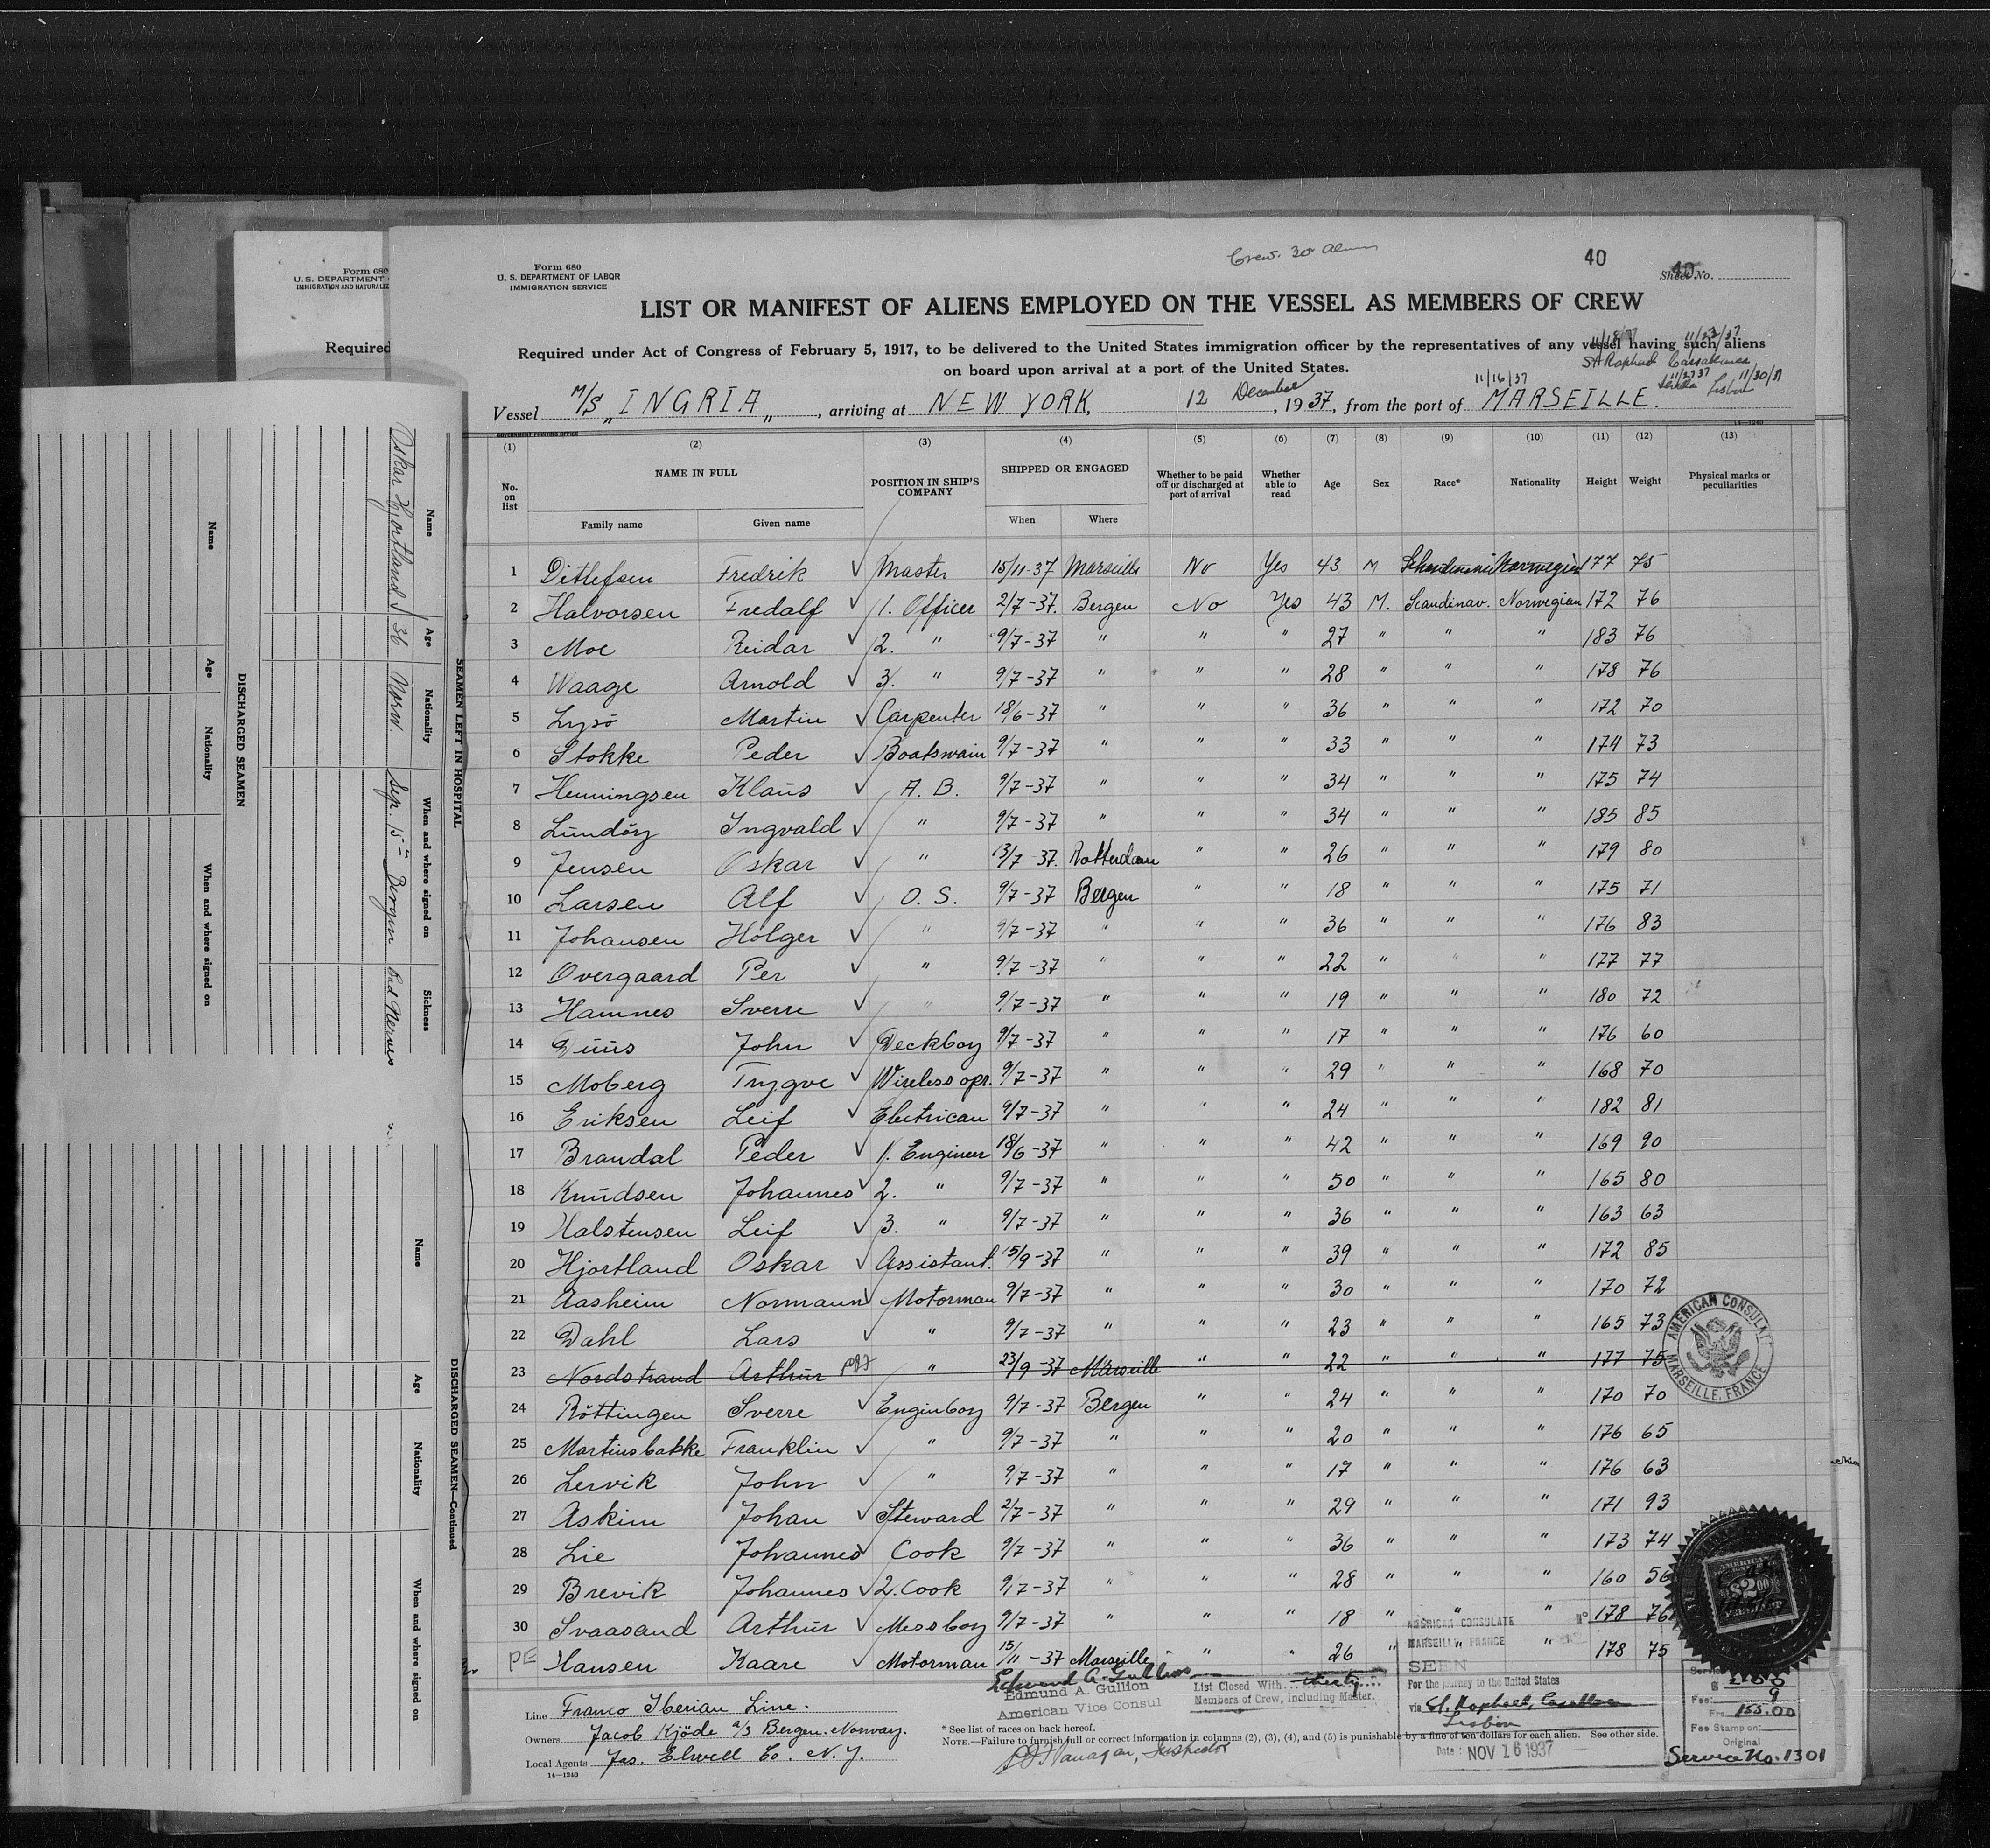 Crew. 30
40
Form 680
U. S. DEPARTMENT OF LABOR
IMMIGRATION SERVICE
Sheet No. 40
LIST OR MANIFEST OF ALIENS EMPLOYED ON THE VESSEL AS MEMBERS OF CREW
Required under Act of Congress of February 5, 1917, to be delivered to the United States immigration officer by the representatives of any vessel having such aliens
on board upon arrival at a port of the United States.
11/18/37 11/23/37
St Raphael Casablanca
11/16/37 11/27/37 11/30/37
Lisbon
Vessel M/S „INGRIA„, arriving at NEW YORK, 12 December, 1937, from the port of MARSEILLE.
14—1240
GOVERNMENT PRINTING OFFICE
(1) (2) (3) (4) (5) (6) (7) (8) (9) (10) (11) (12) (13)
No. on list NAME IN FULL Family name Given name POSITION IN SHIP'S COMPANY SHIPPED OR ENGAGED When Where Whether to be paid off or discharged at port of arrival Whether able to read Age Sex Race* Nationality Height Weight Physical marks or peculiarities
1 Ditlefsen Fredrik ✓ Master 15/11-37 Marseille No Yes 43 M Norwegian 177 75
2 Halvorsen Fredalf ✓ 1. Officer 2/7-37. Bergen No Yes 43 M. Scandinav. Norwegian 172 76
3 Moe Reidar ✓ 2. " 9/7-37 " " " 27 " " " 183 76
4 Waage Arnold ✓ 3. " 9/7-37 " " " 28 " " " 178 76
5 Lysö Martin ✓ Carpenter 18/6-37 " " " 36 " " " 172 70
6 Stokke Peder ✓ Boatswain 9/7-37 " " " 33 " " " 174 73
7 Henningsen Klaus ✓ A. B. 9/7-37 " " " 34 " " " 175 74
8 Lundöy Ingvald ✓ " 9/7-37 " " " 34 " " " 185 85
9 Jensen Oskar ✓ " 13/7-37. Rotterdam " " 26 " " " 179 80
10 Larsen Alf ✓ O. S. 9/7-37 Bergen " " 18 " " " 175 71
11 Johansen Holger ✓ " 9/7-37 " " " 36 " " " 176 83
12 Overgaard Per ✓ " 9/7-37 " " " 22 " " " 177 77
13 Hamnes Sverre ✓ " 9/7-37 " " " 19 " " " 180 72
14 Duus John ✓ Deckboy 9/7-37 " " " 17 " " " 176 60
15 Moberg Trygve ✓ Wireless opr. 9/7-37 " " " 29 " " " 168 70
16 Eriksen Leif ✓ Electrican 9/7-37 " " " 24 " " " 182 81
17 Brandal Peder ✓ 1. Engineer 18/6-37 " " " 42 " " " 169 90
18 Knudsen Johannes ✓ 2. " 9/7-37 " " " 50 " " " 165 80
19 Halstensen Leif ✓ 3. " 9/7-37 " " " 36 " " " 163 63
20 Hjortland Oskar ✓ Assistant. 15/9-37 " " " 39 " " " 172 85
21 Aasheim Normann ✓ Motorman 9/7-37 " " " 30 " " " 170 72
22 Dahl Lars ✓ " 9/7-37 " " " 23 " " " 165 73
23 Nordstrand Arthur " 23/9-37 Marseille " " 22 " " " 177 75
24 Röttingen Sverre ✓ Enginboy 9/7-37 Bergen " " 24 " " " 170 70
25 Martinsbakke Franklin ✓ " 9/7-37 " " " 20 " " " 176 65
26 Lervik John ✓ " 9/7-37 " " " 17 " " " 176 63
27 Askim Johan ✓ Steward 2/7-37 " " " 29 " " " 171 93
28 Lie Johannes ✓ Cook 9/7-37 " " " 36 " " " 173 74
29 Brevik Johannes ✓ 2. Cook 9/7-37 " " " 28 " " " 160 56
30 Svaasand Arthur ✓ Messboy 9/7-37 " " " 18 " " " 178 76
PE Hansen Kaare ✓ Motorman 15/11-37 Marseille " " 26 " " " 178 75
AMERICAN CONSULATE
MARSEILLE, FRANCE
AMERICAN CONSULATE
MARSEILLE FRANCE
SEEN
For the journey to the United States
via St. Raphael,
Lisbon
Date: NOV 16 1937
Edmund A. Gullion
Edmund A. Gullion
American Vice Consul
List Closed With thirty
Members of Crew, Including Master.
$ 2.00
Fee: 9
Frs. 155.00
Fee Stamp on:
Original
Service No. 1301
Line Franco Iberian Line.
Owners Jacob Kjöde a/s Bergen. Norway.
Local Agents Jas. Elwell Co. N. Y.
14—1240
* See list of races on back hereof.
NOTE.—Failure to furnish full or correct information in columns (2), (3), (4), and (5) is punishable by a fine of ten dollars for each alien. See other side.
Inspector
Form 680
U. S. DEPARTMENT
IMMIGRATION AND NATURALIZ
Required
SEAMEN LEFT IN HOSPITAL
Name Age Nationality When and where signed on Sickness
Oskar Hjortland 36 Norw. Sep. 15th Bergen Bad Nerves
DISCHARGED SEAMEN
Name Age Nationality When and where signed on
DISCHARGED SEAMEN—Continued
Name Age Nationality When and where signed on